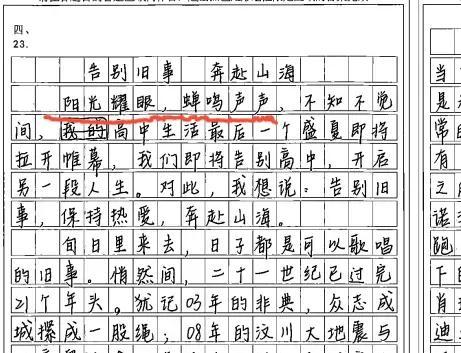 四、
23.
告别旧事 奔赴山海
阳光耀眼，蝉鸣声声，不知不觉
间，我的高中生活最后一个盛夏即将
拉开帷幕，我们即将告别高中，开启
另一段人生。对此，我想说：告别旧
事，保持热爱，奔赴山海。
旬日里来去，日子都是可以歌唱
的旧事。悄然间，二十一世纪已过完
21个年头。犹记03年的非典，众志成
城摞成一股绳；08年的汶川大地震与
当
是
常
有
之
诺
跑
下
肖
迪